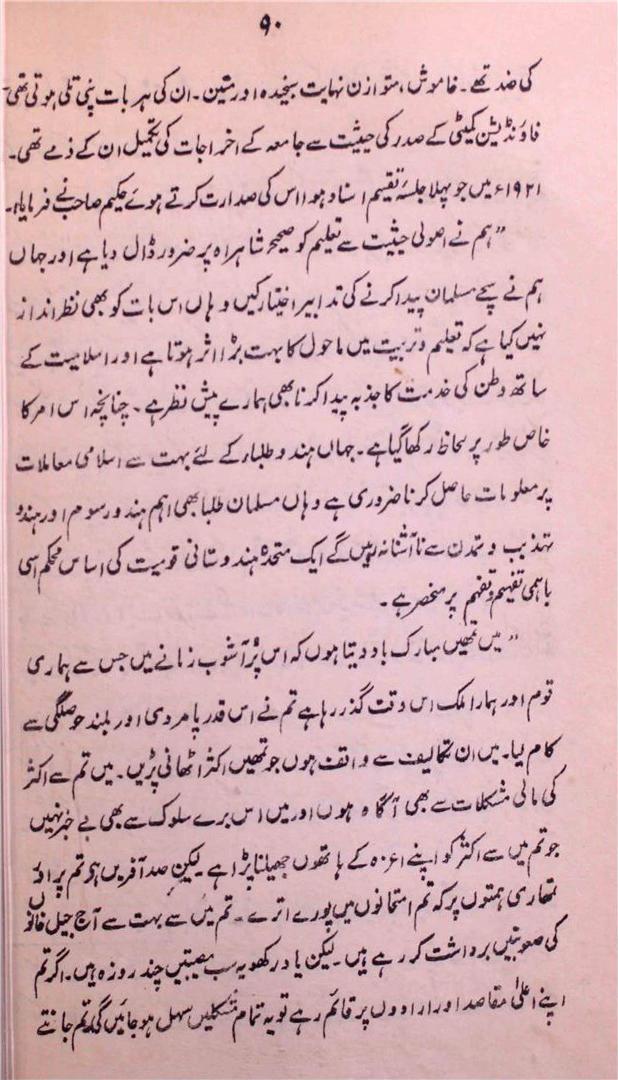 ۹۰
کی ضد تھے۔ خاموش، متوازن نہایت سنجیدہ اور متین۔ ان کی ہر بات نپی تلی ہوتی تھی۔
فاؤنڈیشن کمیٹی کے صدر کی حیثیت سے جامعہ کے اخراجات کی تکمیل ان کے ذمے تھی۔
۱۹۲۱ء میں جو پہلا جلسۂ تقسیم اسناد ہوا اس کی صدارت کرتے ہوئے حکیم صاحب نے فرمایا:۔
”ہم نے اصولی حیثیت سے تعلیم کو صحیح شاہراہ پر ضرور ڈال دیا ہے اور جہاں
ہم نے سچے مسلمان پیدا کرنے کی تدابیر اختیار کیں وہاں اس بات کو بھی نظر انداز
نہیں کیا ہے کہ تعلیم و تربیت میں ماحول کا بہت بڑا اثر ہوتا ہے اور اسلامیت کے
ساتھ وطن کی خدمت کا جذبہ پیدا کرنا بھی ہمارے پیش نظر ہے۔ چنانچہ اس امر کا
خاص طور پر لحاظ رکھا گیا ہے۔ جہاں ہندو طلباء کے لئے بہت سے اسلامی معاملات
پر معلومات حاصل کرنا ضروری ہے وہاں مسلمان طلبا بھی اہم ہندو رسوم اور ہندو
تہذیب و تمدن سے ناآشنا نہ رہیں گے ایک متحدہ ہندوستانی قومیت کی اساس محکم اسی
باہمی تفہیم و تفہم پر منحصر ہے۔
”میں تمھیں مبارک باد دیتا ہوں کہ اس پُرآشوب زمانے میں جس سے ہماری
قوم اور ہمارا ملک اس وقت گذر رہا ہے تم نے اس قدر پامردی اور بلند حوصلگی سے
کام لیا۔ میں ان تکالیف سے واقف ہوں جو تمھیں اکثر اٹھانی پڑیں۔ میں تم سے اکثر
کی مالی مشکلات سے بھی آگاہ ہوں اور میں اس برے سلوک سے بھی بے خبر نہیں
جو تم میں سے اکثر کو اپنے اعزہ کے ہاتھوں جھیلنا پڑا ہے۔ لیکن صد آفریں ہو تم پر اور
تمھاری ہمتوں پر کہ تم امتحانوں میں پورے اترے۔ تم میں سے بہت سے آج جیل خانوں
کی صعوبتیں برداشت کر رہے ہیں۔ لیکن یاد رکھو یہ سب مصیبتیں چند روزہ ہیں۔ اگر تم
اپنے اعلیٰ مقاصد اور ارادوں پر قائم رہے تو یہ تمام مشکلیں سہل ہو جائیں گی۔ تم جانتے